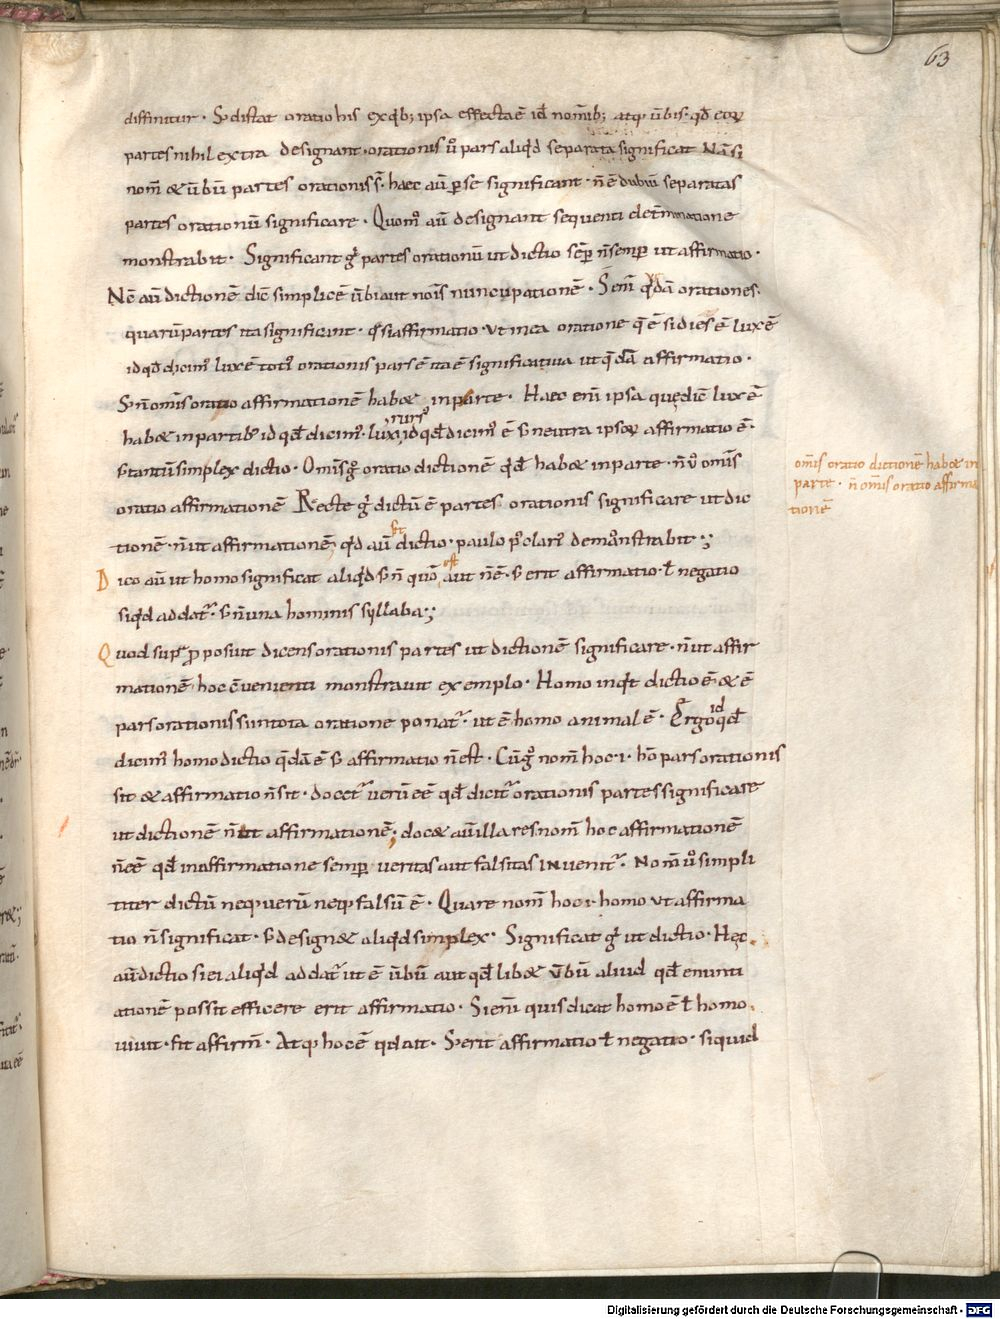 63
diffinitur · S; distat oratio his ex qb; ipsa effecta ē id nomīb; atq; ūbis · qd eoꝝ
partes nihil extra designant · orationis ū pars aliqd separata significat Nā si
nom̄ & ūbū partes orationis s̄ · haec aū p se significant · n̄ ē dubiū separatas
partes orationū significare · Quom̄ aū designant sequenti detminatione
monstrabit · Significant g̊ partes orationū ut dictio sēp n̄ semp ut affirmatio ·
Nē aū dictionē dīc simplicē ūbi aut nōis nuncupationē · S enī qdā orationes ·
quarū partes ita significant · q̄si affirmatio · Ut in ea oratione q̄ ē si dies ē lux ē
id qd dicim' lux ē toti' orationis pars ē ita ē significatiua ut q̄dā affirmatio ·
S; n̄ omis oratio affirmationē hab& in parte · Haec enī ipsa quę dīc lux ē
hab& in partib' id qd dicim' · lux, rurs' id qd dicim' ē s; neutra ipsoꝝ affirmatio ē ·
s; tantū simplex dictio · Omīs g̊ oratio dictionē qdē hab& in parte · n̄ ū omīs
oratio affirmationē Recte g̊ dictū ē partes orationis significare ut dic
tionē · n̄ ut affirmationē; qd aū sit dictio · paulo p' clari' demonstrabit ·;
Dico aū ut homo significat aliqd s; n̄ quō est aut n̄ ē · s; erit affirmatio · ł negatio
si qd addat' · s; n̄ una hominis syllaba ·;
Quod sup' pposuit dicens orationis partes ut dictionē significare · n̄ ut affir
mationē · hoc c̄uenienti monstrauit exemplo · Homo inqt dictio ē · & ē
pars orationis si in tota oratione ponat' · ut ē homo animal ē · Ergo id qd
dicim' homo dictio q̄dā ē s; affirmatio n̄ est · Cū g̊ nom̄ hoc · i · hō pars orationis
sit & affirmatio n̄ sit · docet' uerū eē qd dicit' orationis partes significare
ut dictionē n̄ ut affirmationē; doc& aū illa res nom̄ hoc affirmationē
n̄ eē qd in affirmatione semp ueritas aut falsitas inuenit' · Nom̄ ū simpli
citer dictū neq; uerū neq; falsū ē · Quare nom̄ hoc · i · homo ut affirma
tio n̄ significat · s; design& aliqd simplex · Significat g̊ ut dictio · Hęc
aū dictio si ei aliqd addat' ut ē ūbū aut qd lib& ūbū aliud qd enunti
ationē possit efficere erit affirmatio · Si enī quis dicat homo ē ł homo
uiuit · fit affirm̄ · Atq; hoc ē qd ait · S; erit affirmatio ł negatio · si quid
omīs oratio dictionē hab& in
parte · n̄ omīs oratio affirma
tionē
Digitalisierung gefördert durch die Deutsche Forschungsgemeinschaft - DFG